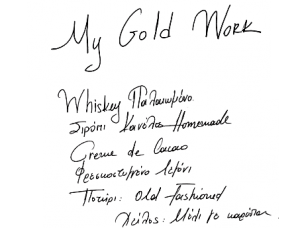 My Gold Work
Whiskey Παλαιωμένο
Σιρόπι Κανέλας Homemade
Creme de Cacao
Φρεσκοστυμένο Λεμόνι
Ποτήρι: Old Fashioned
Χείλος: Μέλι με